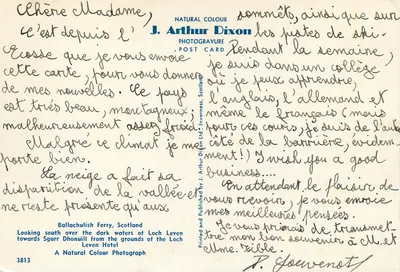 Chère Madame,
C'est depuis l'
Ecosse que je vous envoie
cette carte, pour vous donner
de mes nouvelles. Ce pays
est très beau, montagneux;
malheureusement assez froid
Malgré ce climat, je me
porte bien.
La neige a fait sa
disparition de la vallée et
ne reste présente qu'aux
Ballachulish Ferry, Scotland
Looking south over the dark waters of Loch Leven
towards Sgurr Dhonuill from the grounds of the Loch
Leven Hotel
A Natural Colour Photograph
3813
NATURAL COLOUR
J. Arthur Dixon
PHOTOGRAVURE
POST CARD
Printed and Published by J. Arthur Dixon Ltd., Inverness, Scotland
sommêts, ainsi que sur
les pistes de ski-
Pendant la semaine,
je suis dans un collège
où je peux apprendre,
l'anglais, l'allemand et
même le français (mais
pour ces cours, je suis de l'autre
côté de la barrière, évidem-
ment!) I wish you a good
business....
En attendant le plaisir de
vous revoir, je vous envoie
mes meilleures pensées.
Je vous prierais de transmet-
tre mon bon souvenir à M. et
Mme.